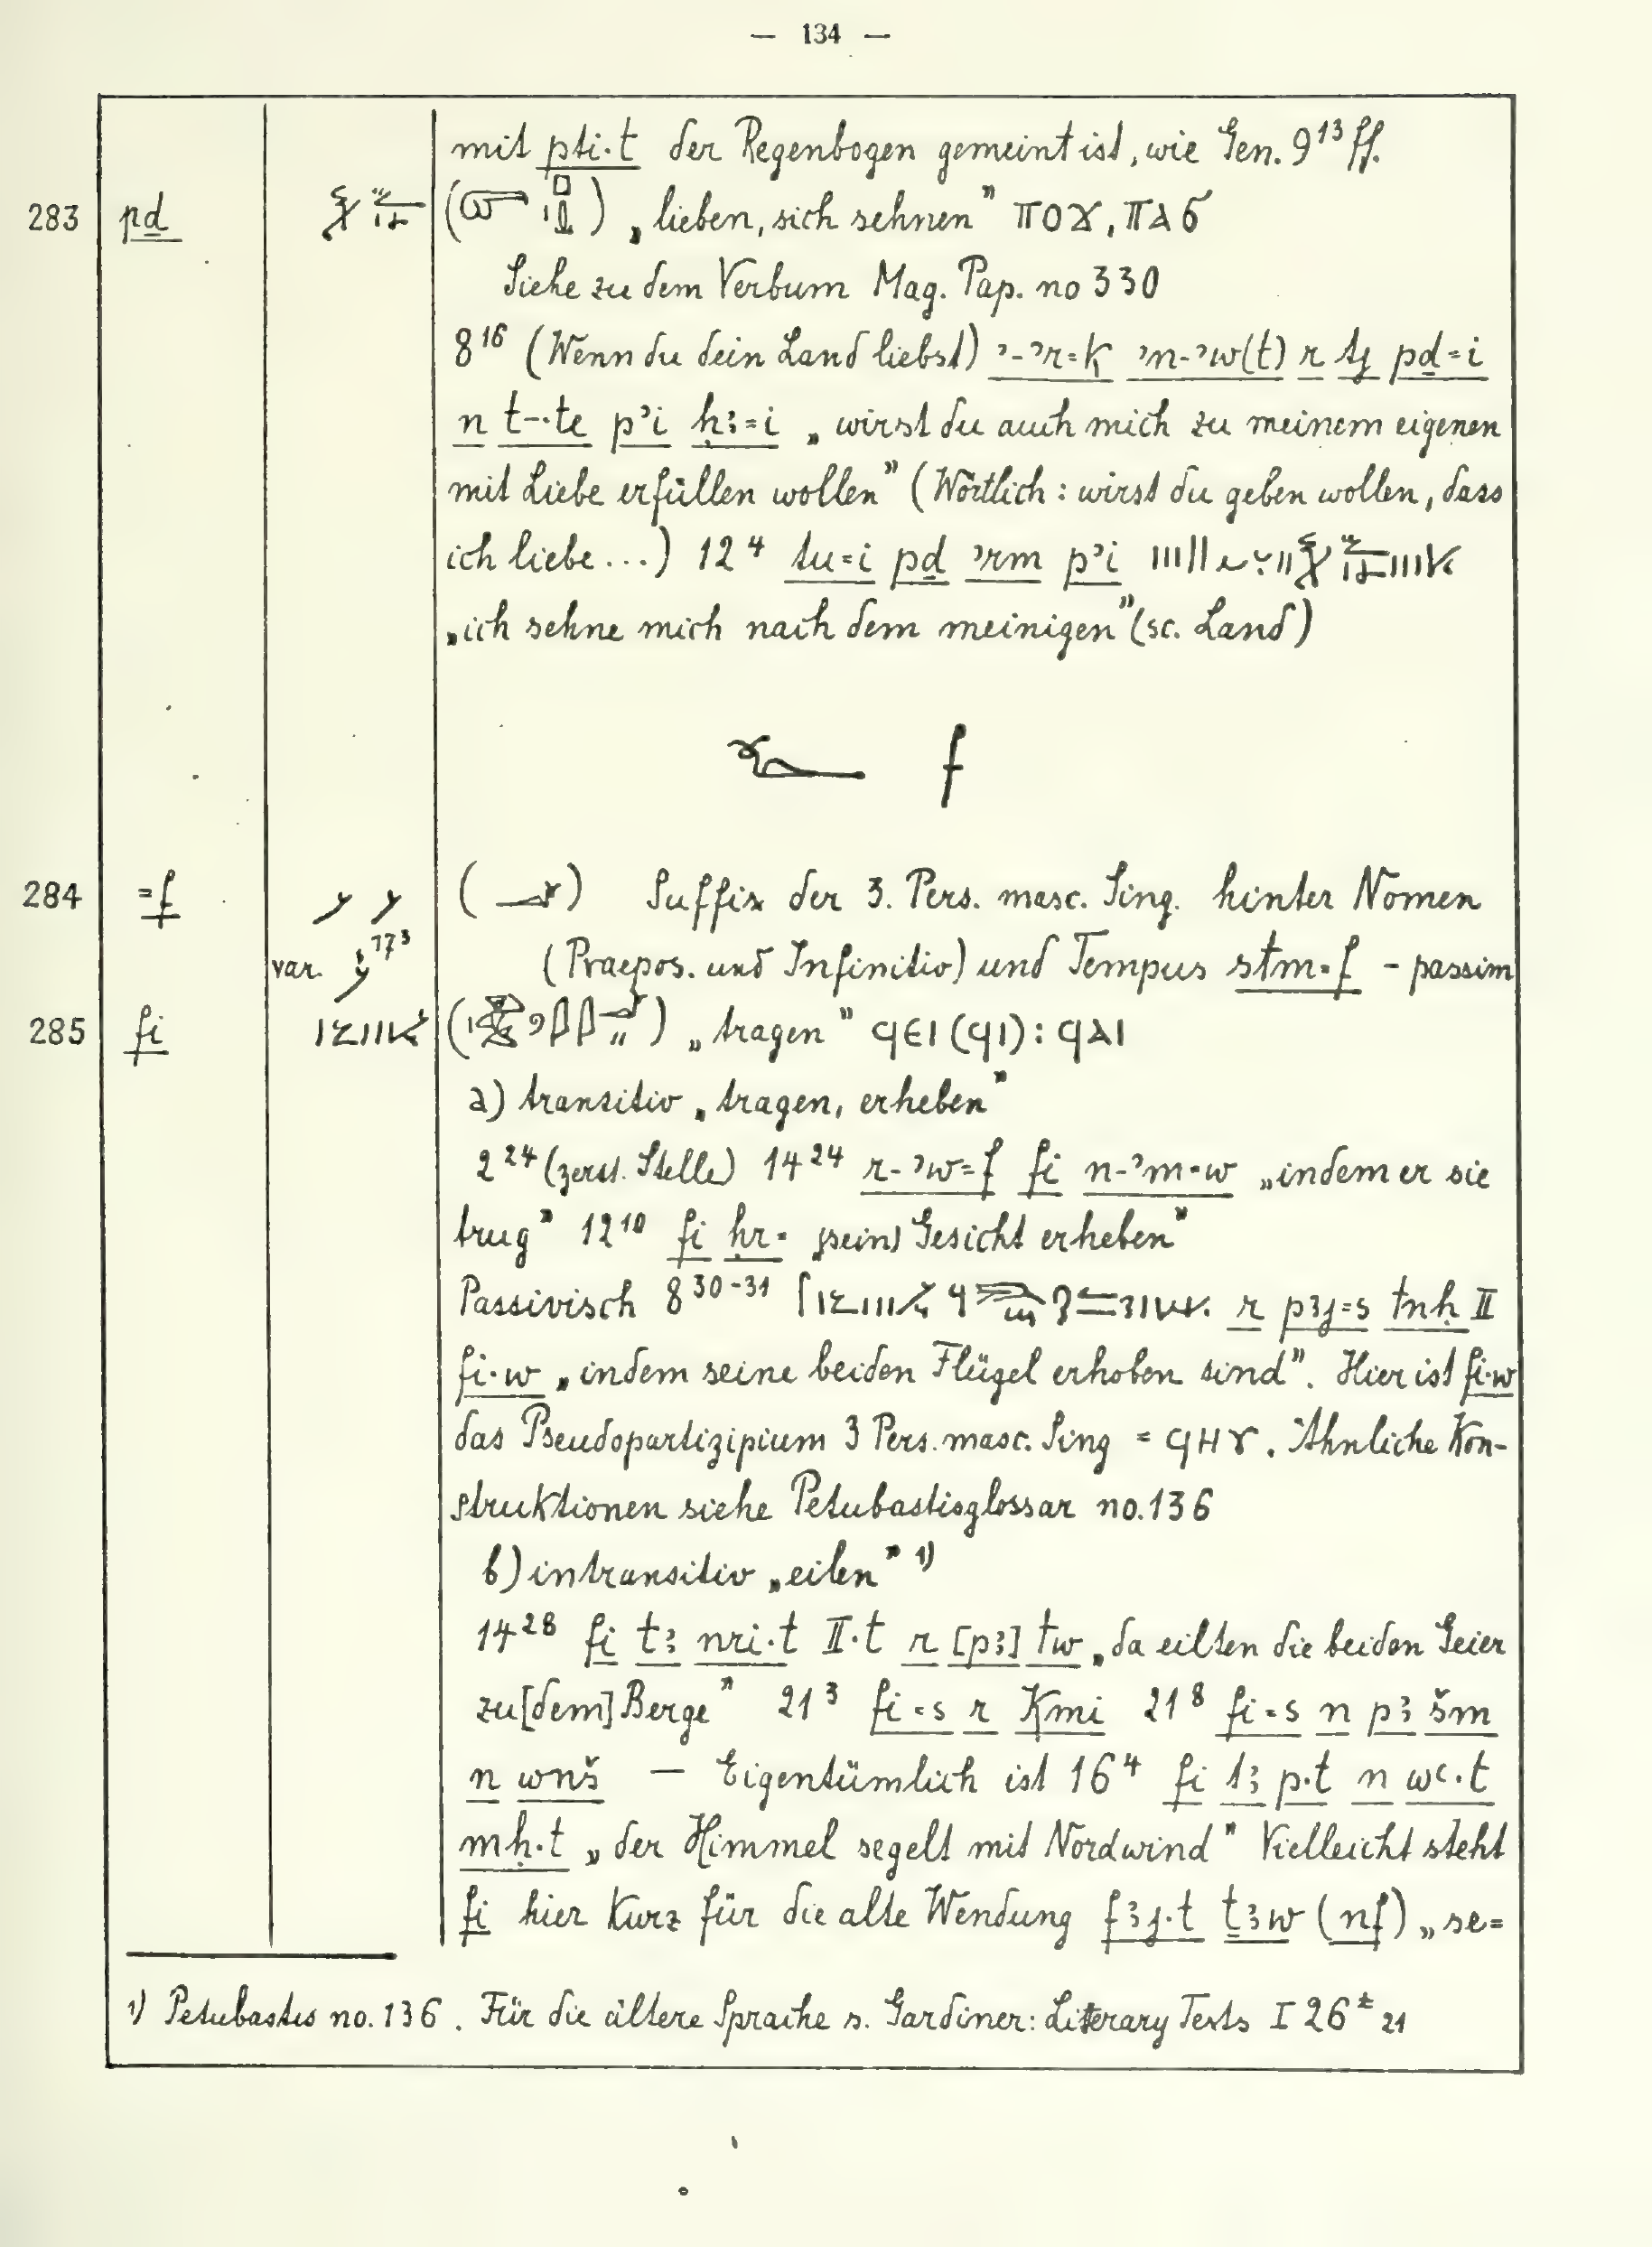 — 134 —
mit pti·t der Regenbogen gemeint ist, wie Gen. 9¹³ ff.
283 pḏ „lieben, sich sehnen” ⲡⲟϫ, ⲡⲁϭ
Siehe zu dem Verbum Mag. Pap. no 330
8¹⁶ (Wenn du dein Land liebst) ʾ-ʾr=k ʾn-ʾw(t) r tj pḏ=i
n t-·te pʾi ḥꜣ=i „wirst du auch mich zu meinem eigenen
mit Liebe erfüllen wollen” (Wörtlich: wirst du geben wollen, dass
ich liebe...) 12⁴ tu=i pḏ ʾrm pʾi
„ich sehne mich nach dem meinigen” (sc. Land)
f
284 =f ( ) Suffix der 3. Pers. masc. Sing. hinter Nomen
var. (Praepos. und Infinitiv) und Tempus stm=f - passim
285 fi ( ) „tragen” ϥⲉⲓ (ϥⲓ): ϥⲁⲓ
a) transitiv „tragen, erheben”
2²⁴ (zerst. Stelle) 14²⁴ r-ʾw=f fi n-ʾm=w „indem er sie
trug” 12¹⁰ fi ḥr= „(sein) Gesicht erheben”
Passivisch 8³⁰⁻³¹ r pꜣj=s tnḥ II
fi·w „indem seine beiden Flügel erhoben sind”. Hier ist fi·w
das Pseudopartizipium 3 Pers. masc. Sing = ϥⲏⲩ. Ähnliche Kon-
struktionen siehe Petubastisglossar no. 136
b) intransitiv „eilen” ¹⁾
14²⁸ fi tꜣ nri·t II·t r [pꜣ] tw „da eilten die beiden Geier
zu [dem] Berge” 21³ fi=s r Kmi 21⁸ fi=s n pꜣ šm
n wnš — Eigentümlich ist 16⁴ fi tꜣ p·t n wꜥ·t
mḥ·t „der Himmel segelt mit Nordwind” Vielleicht steht
fi hier kurz für die alte Wendung fꜣj·t ṯꜣw (nf) „se=
¹⁾ Petubastis no. 136. Für die ältere Sprache s. Gardiner: Literary Texts I 26* 21